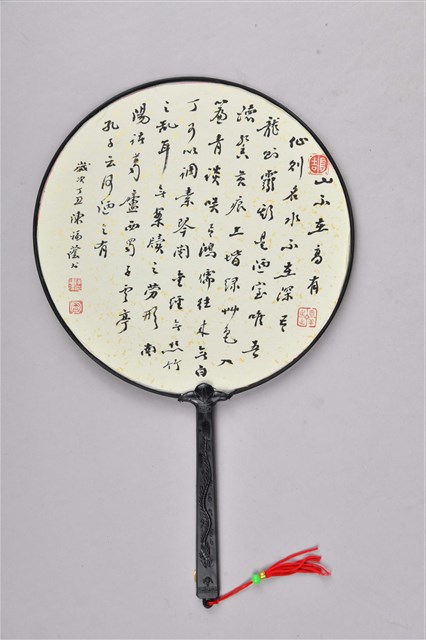 山不在高有
仙則名水不在深有
龍則靈斯是陋室唯吾
德馨苔痕上堦綠艸色入
簾青談咲有鴻儒往來無白
丁可以調素琴閱金經無絲竹
之亂耳無案牘之勞形南
陽諸葛廬西蜀子雲亭
孔子云何陋之有
歲次丁丑陳福蔭書